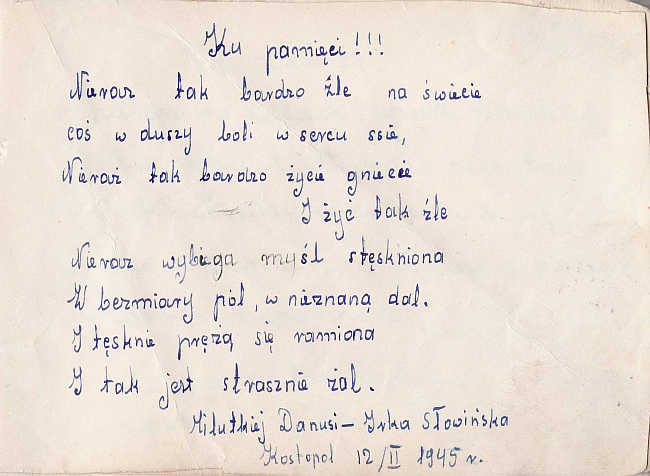 Ku pamięci!!!
Nieraz tak bardzo źle na świecie
coś w duszy boli w sercu ssie,
Nieraz tak bardzo życie gniecie
I żyć tak źle
Nieraz wybiega myśl stęskniona
W bezmiary pól, w nieznaną dal.
I tęsknie prężą się ramiona
I tak jest strasznie żal.
Milutkiej Danusi – Irka Słowińska
Kostopol 12/II 1945 r.